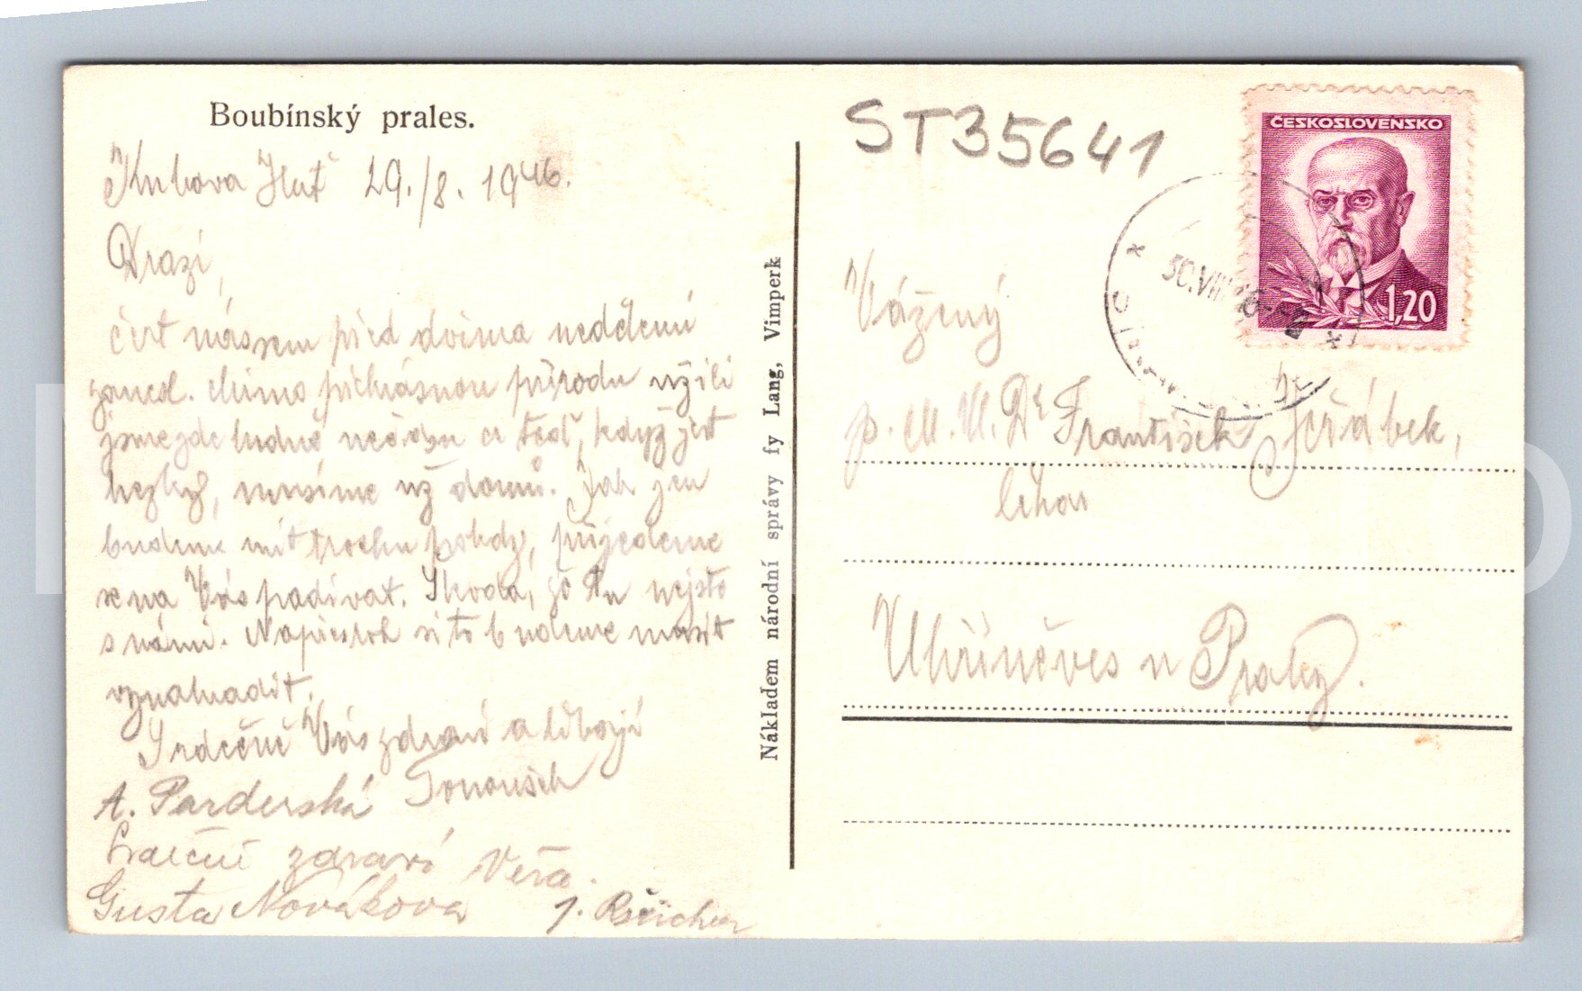 Boubínský prales.
Kubova Huť 29./8. 1946.
Drazí,
před dvěma nedělemi
mimo překrásnou přírodu užili
jsme zde hodně a teď, když je
hezky, musíme už domů. Jak jen
budeme mít trochu , přijedeme
se na Vás podívat. Škoda, že nejste
s námi. Napřesrok si to budeme muset
vynahradit.
Srdečně Vás zdraví a líbají
A. Parderská Tonoušek
Srdečně zdraví Věra.
Gusta Nováková J.
Nákladem národní správy fy Lang, Vimperk
ST35641
ČESKOSLOVENSKO
1,20
30.VIII.46
Vážený
p. M.U.Dr František Jeřábek,
lékař
Uhříněves u Prahy.